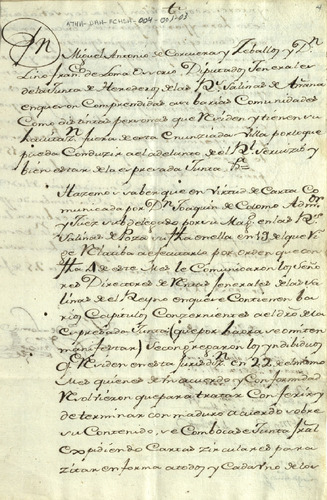 ATHA-DAH-FCHSA-004-001-03
Dn
Miguel Antonio de Corcuera y Zeballos y Dn
Lino Franco de Loma Ossorio Diputados Jenerales
de la Junta de Herederos de las Rs Salinas de Añana
en que son Comprendidas a barias Comunidades
Como distintas personas que Residen y tienen su
havitazn fuera de esta enunziada Villa por lo que
pueda Conduzir a el adelanto de el Rl Serwzio y
bien estar de la expresada Junta &a
Hazemos saver que en Virtud de Carta Co
municada por Dn Joaquin de Colomo Admor
y Juez Subdelegado por su Magd en las Rs
Salinas de Poza su fha en ella en 13 de que
Rezibia executarla por orden que con
fha 4 de este Mes le Comunicaron los Señores
Directores de Rentas Jenerales de las Sa
linas de el Reyno en que se Contienen ba
rios Capitulos Conzernientes a el dro de la
expresada Junta (que por haora se omiten
manifestar) Se Congregaron los Yndibiduos
qe Residen en esta Jurisdizn en 22 de el mismo
Mes quienes de Un acuerdo y Conformidad
Resolvieron que para tratar Conferir y
determinar con maduro acuerdo sobre
su Contenido, se Comboca se Junta Jral
expidiendo Cartas Zirculares para
zitar en forma a todos y Cada Uno de los